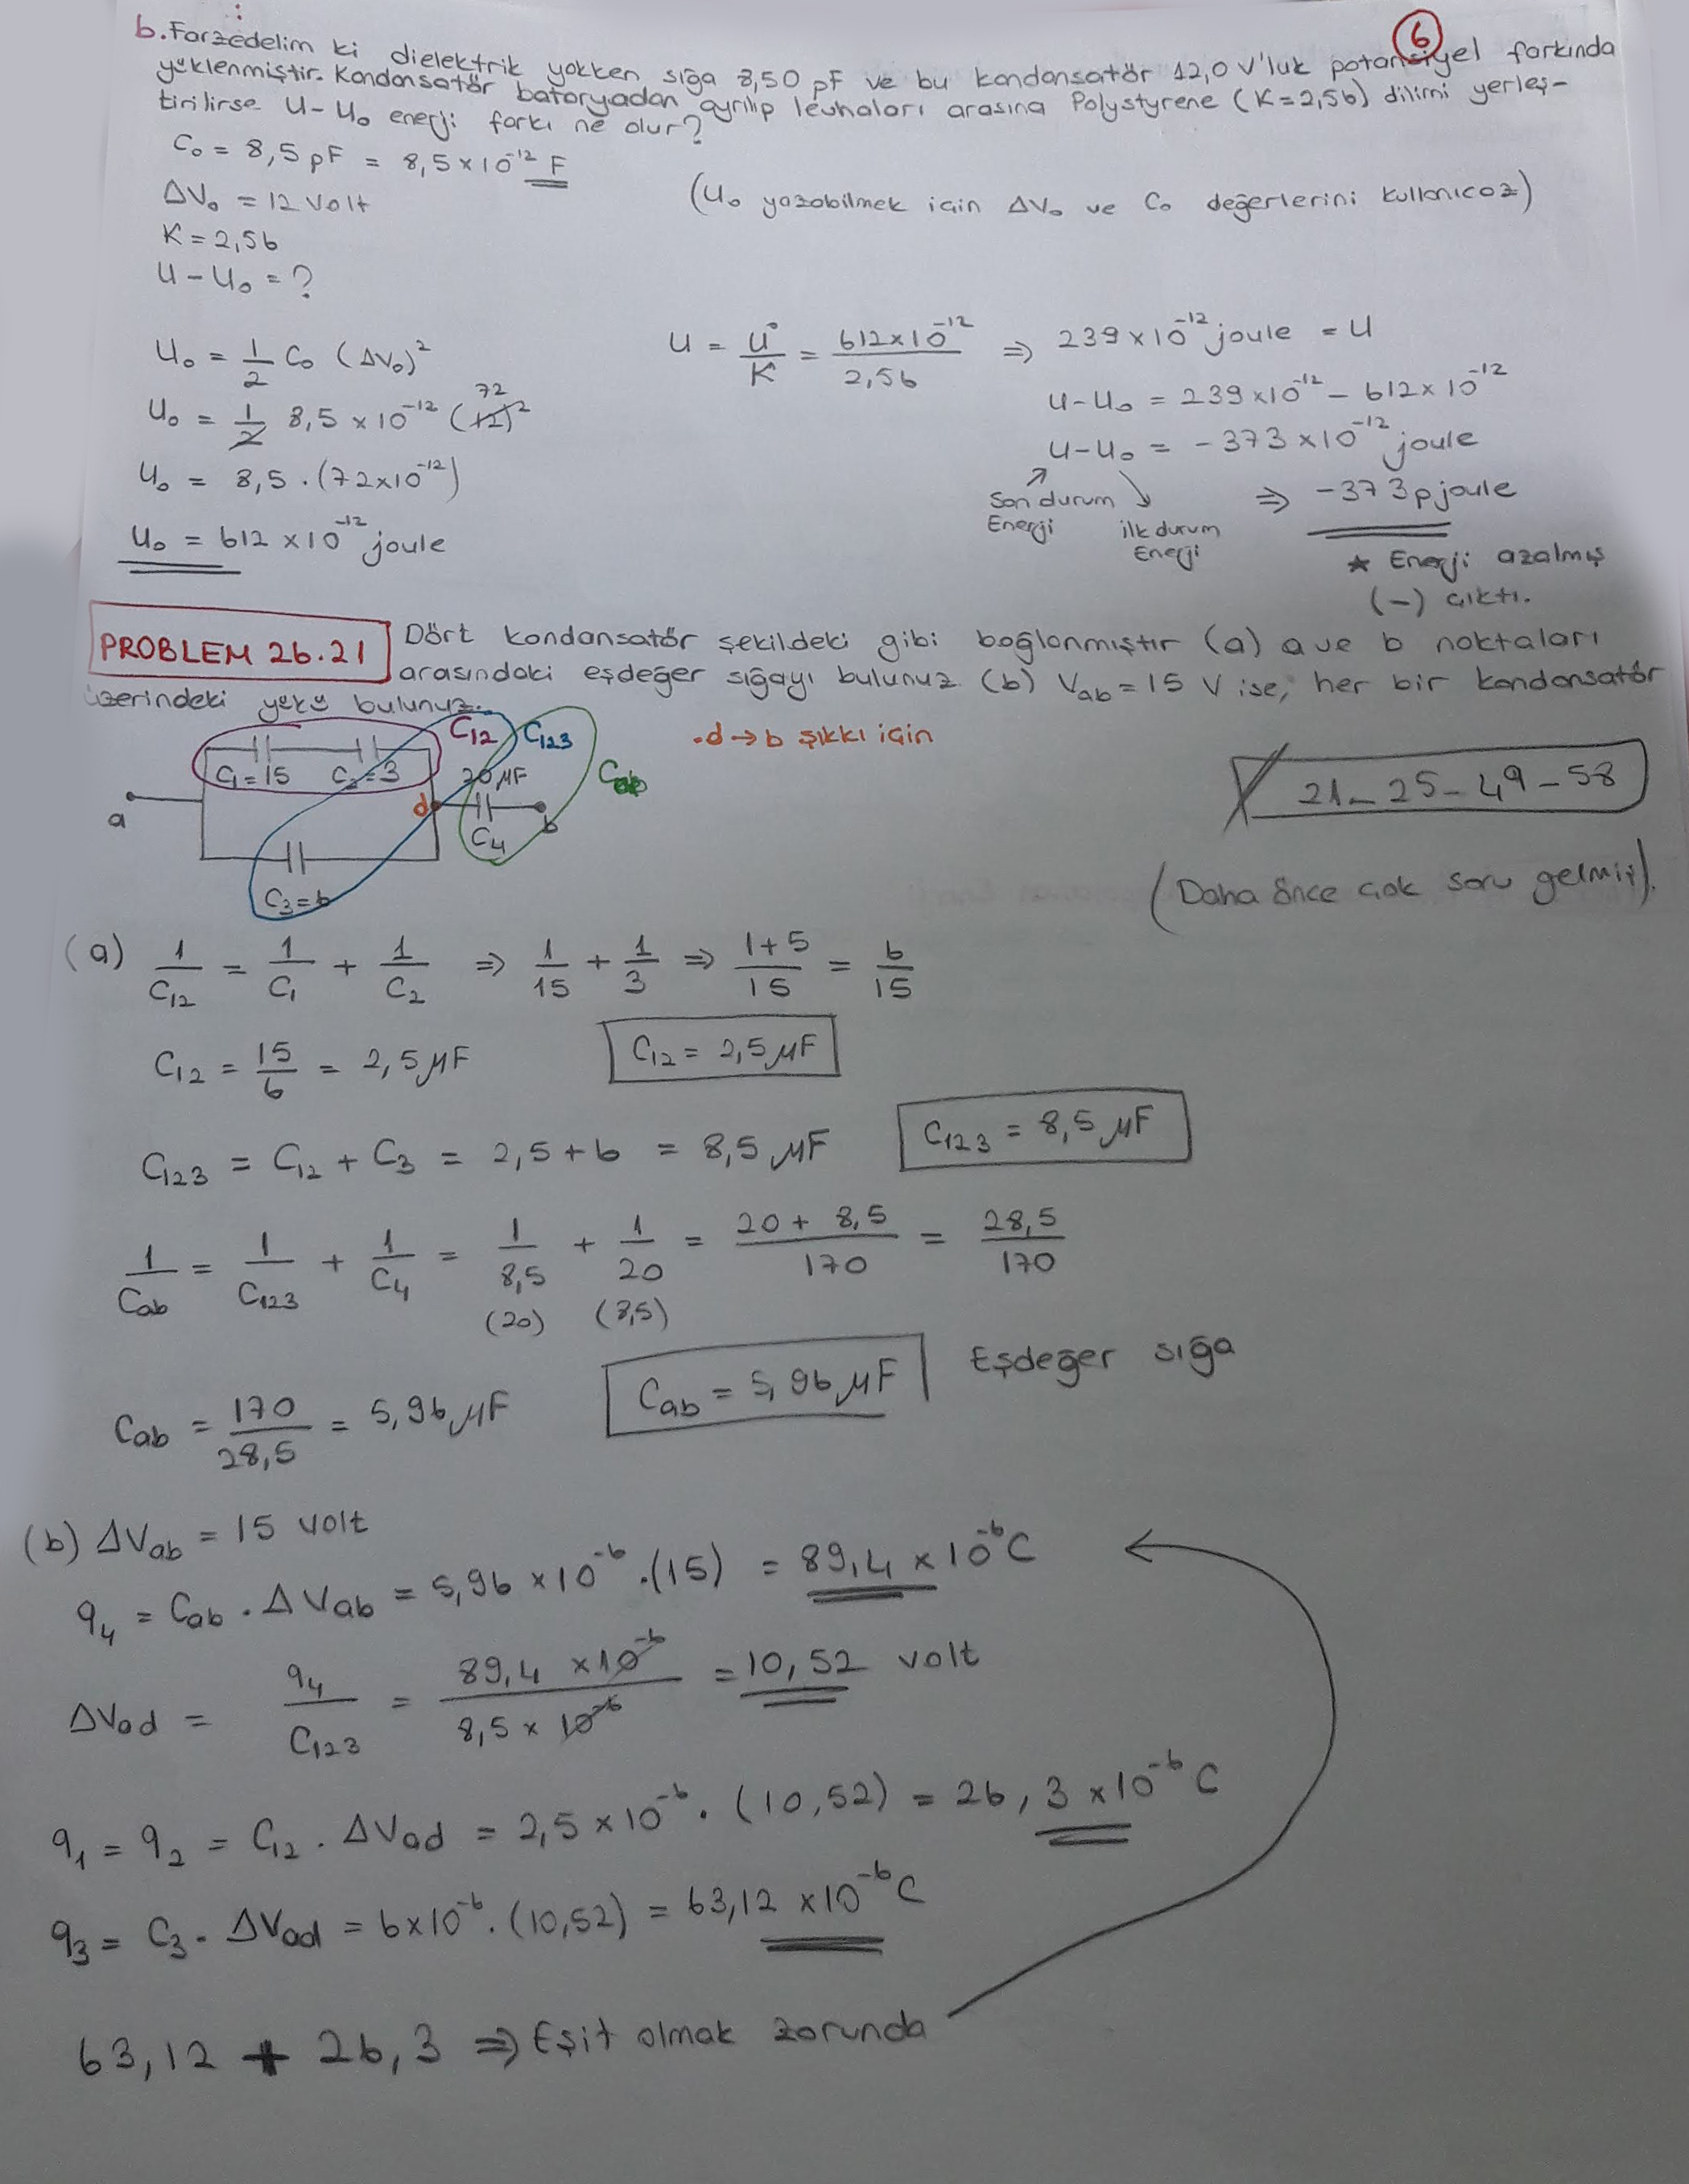 6
b. Farzedelim ki dielektrik yokken sığa 8,50 pF ve bu kondansatör 12,0 V'luk potansiyel farkında
yüklenmiştir. Kondansatör bataryadan ayrılıp levhaları arasına Polystyrene (K=2,56) dilimi yerleş-
tirilirse U-U₀ enerji farkı ne olur?
C₀ = 8,5 pF = 8,5×10⁻¹² F
ΔV₀ = 12 Volt
(U₀ yazabilmek için ΔV₀ ve C₀ değerlerini kullanıcaz)
K = 2,56
U - U₀ = ?
U₀ = 1/2 C₀ (ΔV₀)²
U₀ = 1/2 8,5 × 10⁻¹² (12)² 72
U₀ = 8,5 . (72×10⁻¹²)
U₀ = 612 × 10⁻¹² joule
U = U°/K = 612×10⁻¹²/2,56 ⇒ 239 × 10⁻¹² joule = U
U-U₀ = 239 ×10⁻¹² - 612 × 10⁻¹²
U-U₀ = - 373 ×10⁻¹² joule
Son durum Enerji
ilk durum Enerji
⇒ -373 pjoule
★ Enerji azalmış
(-) çıktı.
PROBLEM 26.21 Dört kondansatör şekildeki gibi bağlanmıştır (a) a ve b noktaları
arasındaki eşdeğer sığayı bulunuz. (b) Vab = 15 V ise, her bir kondansatör
üzerindeki yükü bulunuz.
C12 C123
.d → b şıkkı için
C₁ = 15 C₂ = 3 20 μF Cab
a d b
C₄
C₃ = 6
21 - 25 - 49 - 58
(Daha önce çok soru gelmiş).
(a) 1/C12 = 1/C₁ + 1/C₂ ⇒ 1/15 + 1/3 ⇒ 1+5/15 = 6/15
C12 = 15/6 = 2,5 μF C12 = 2,5 μF
C123 = C12 + C3 = 2,5 + 6 = 8,5 μF C123 = 8,5 μF
1/Cab = 1/C123 + 1/C4 = 1/8,5 + 1/20 = 20 + 8,5/170 = 28,5/170
(20) (8,5)
Cab = 170/28,5 = 5,96 μF Cab = 5,96 μF Eşdeğer sığa
(b) ΔVab = 15 volt
q₄ = Cab . ΔVab = 5,96 × 10⁻⁶ . (15) = 89,4 × 10⁻⁶ C
ΔVad = q₄/C123 = 89,4 × 10⁻⁶/8,5 × 10⁻⁶ = 10,52 volt
q₁ = q₂ = C12 . ΔVad = 2,5 × 10⁻⁶ . (10,52) = 26,3 × 10⁻⁶ C
q₃ = C₃ . ΔVad = 6×10⁻⁶ . (10,52) = 63,12 × 10⁻⁶ C
63,12 + 26,3 ⇒ Eşit olmak zorunda